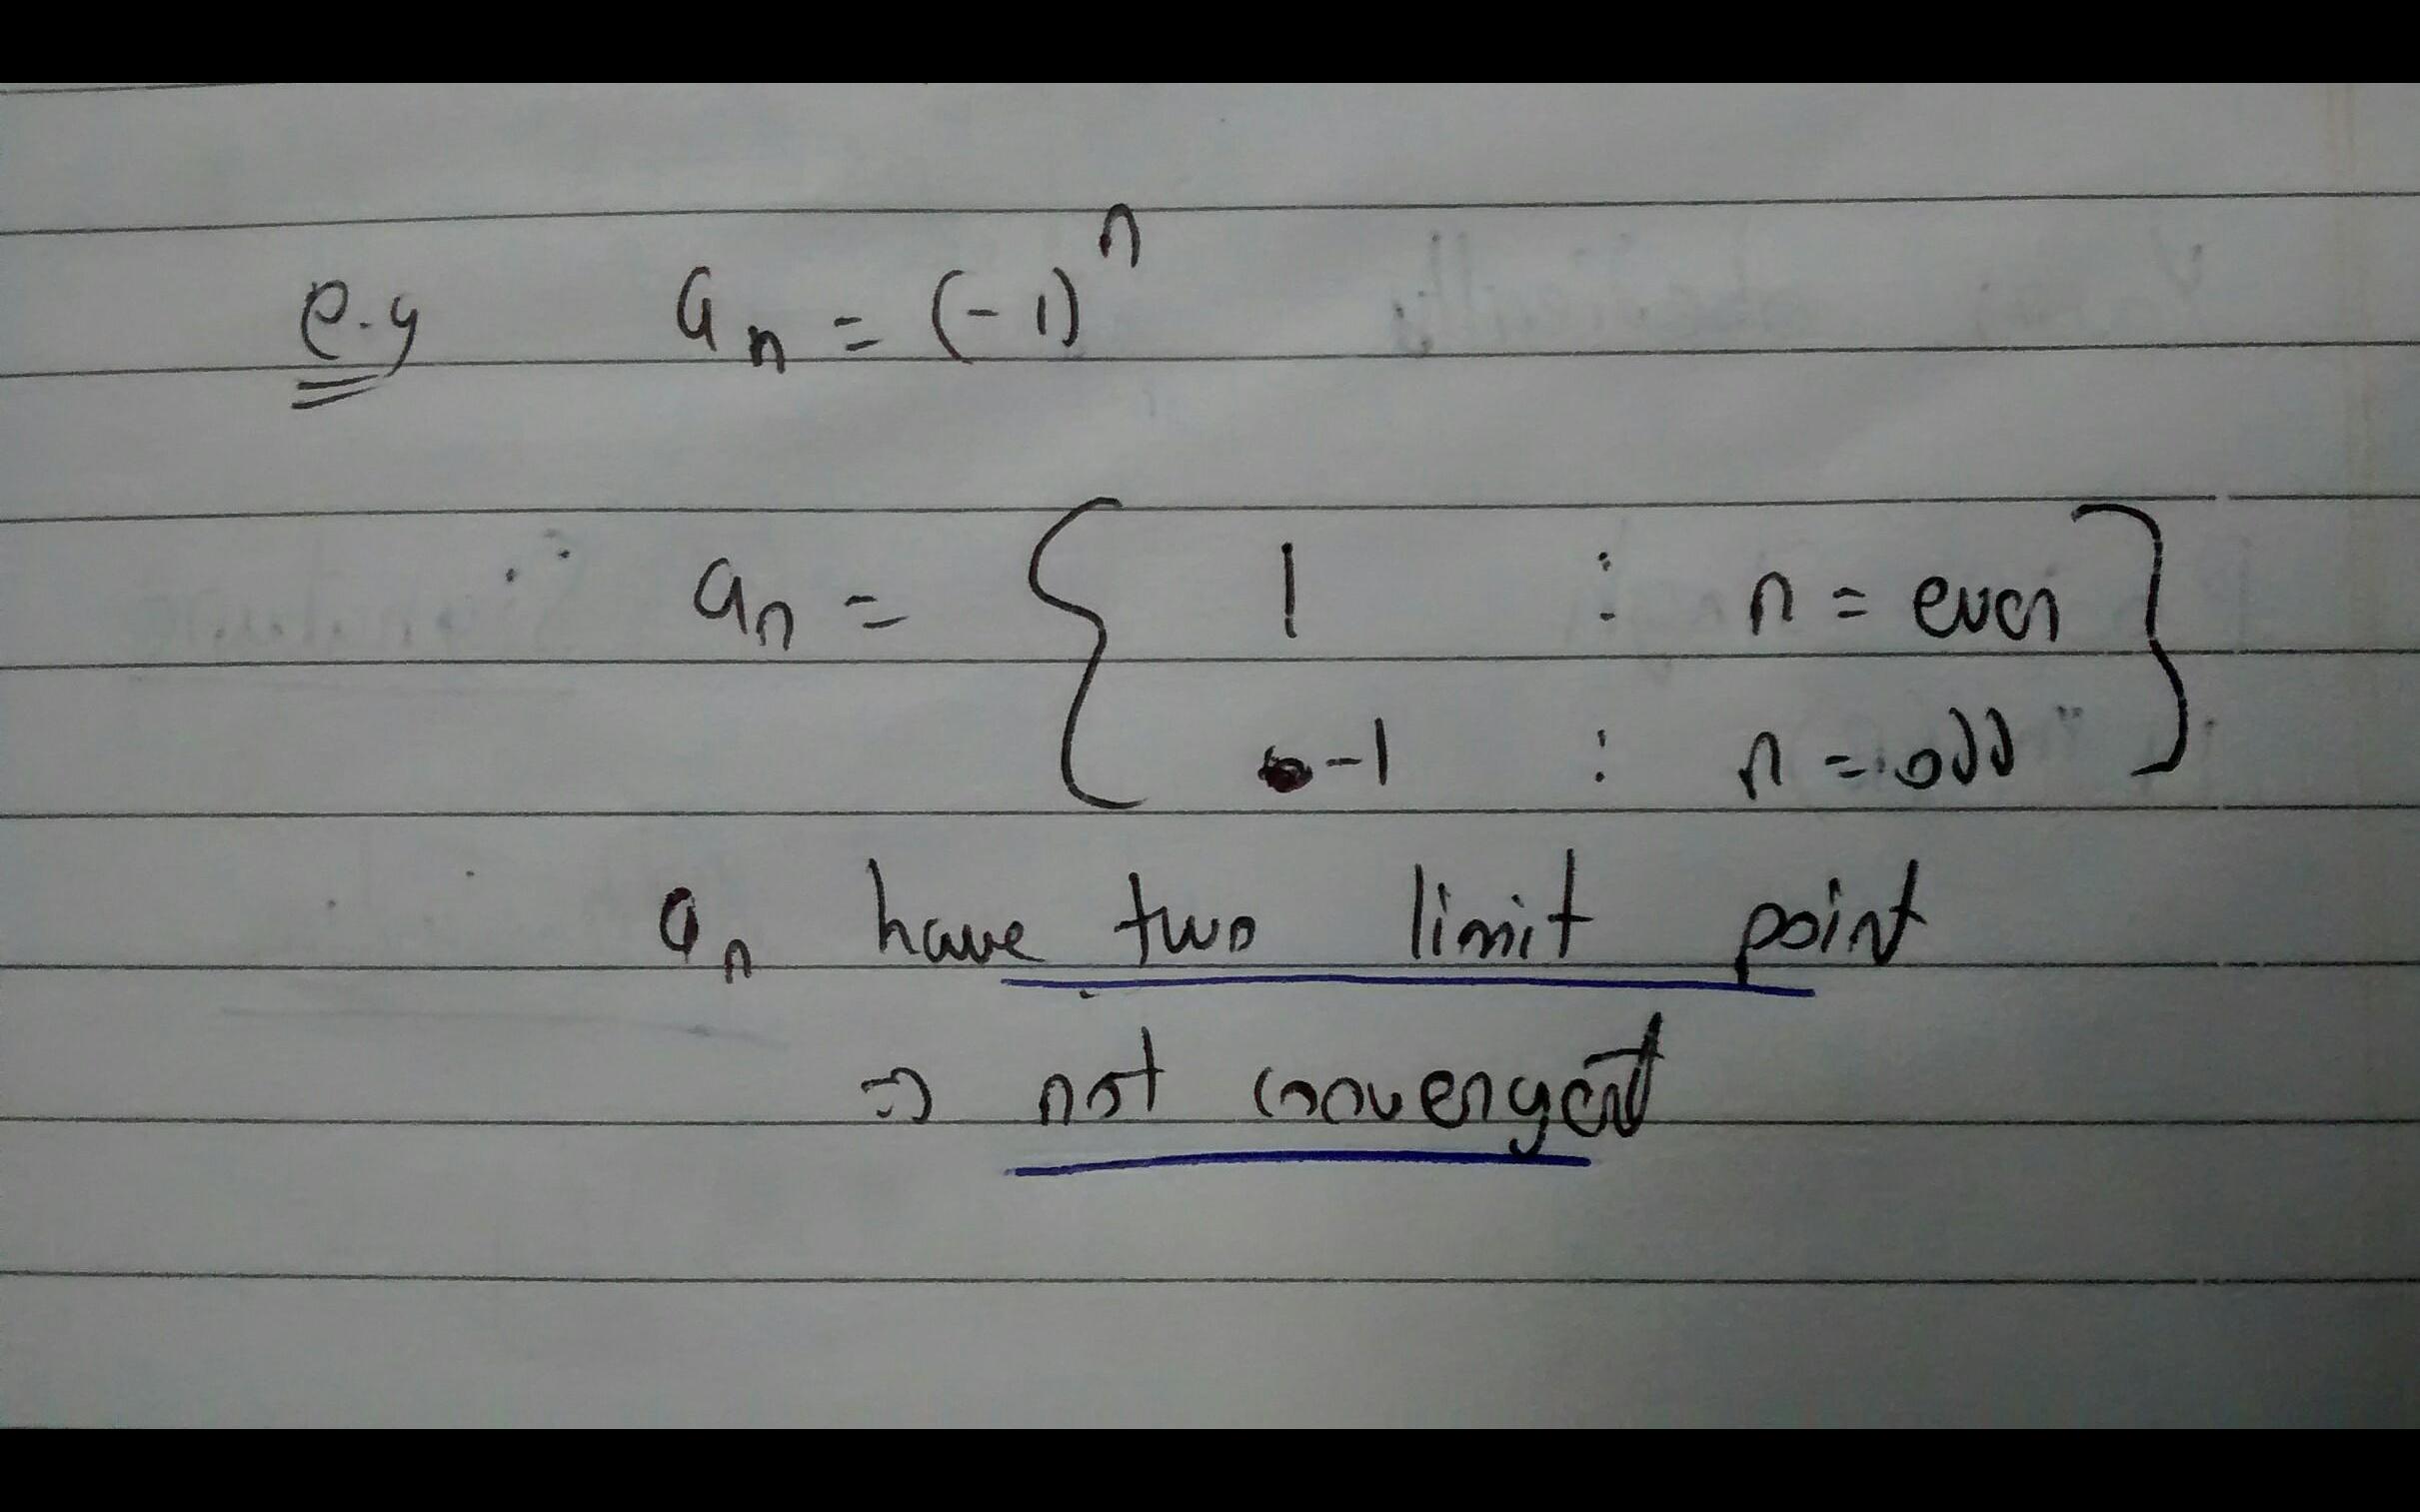 e.g a_n = (-1)^n
a_n = { 1 : n = even }
-1 : n = odd
a_n have two limit point
⇒ not convergent